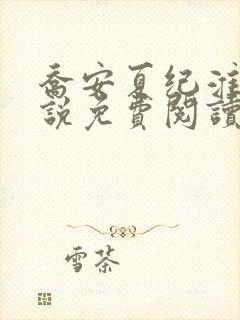 喬安夏纪淮
說免費閱讀
雪茶